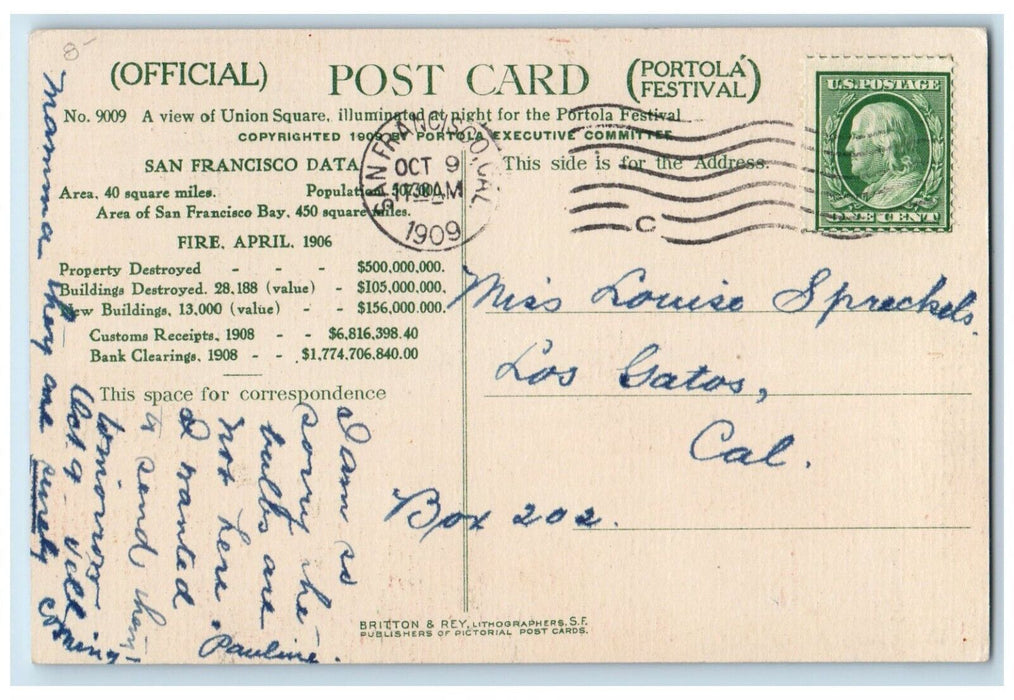 8-
(OFFICIAL) POST CARD (PORTOLÁ FESTIVAL)
No. 9009 A view of Union Square, illuminated at night for the Portola Festival
COPYRIGHTED 1909 BY PORTOLA EXECUTIVE COMMITTEE
SAN FRANCISCO DATA
Area, 40 square miles. Population,
Area of San Francisco Bay, 450 square miles.
FIRE, APRIL, 1906
Property Destroyed - - - $500,000,000.
Buildings Destroyed, 28,188 (value) - $105,000,000.
New Buildings, 13,000 (value) - - $156,000,000.
Customs Receipts, 1908 - - $6,816,398.40
Bank Clearings, 1908 - - $1,774,706,840.00
This space for correspondence
I am so
sorry the
bulbs are
not here
I wanted
to send them
tomorrow
that I will
Mamma they are surely coming
Pauline.
SAN FRANCISCO, CAL
OCT 9
30AM
1909
C
This side is for the Address.
U.S. POSTAGE
ONE CENT
Miss Louise Spreckels.
Los Gatos,
Cal.
Box 202.
BRITTON & REY, LITHOGRAPHERS, S.F.
PUBLISHERS OF PICTORIAL POST CARDS.